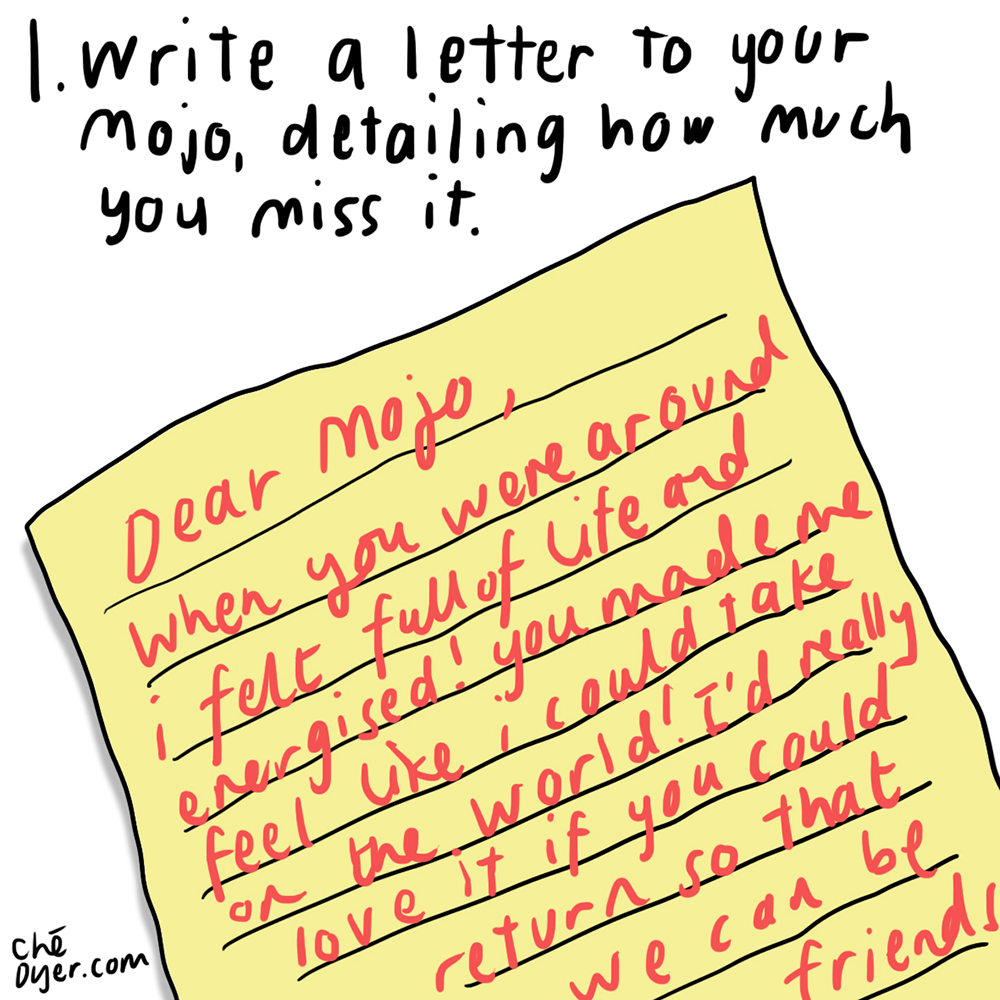 1. Write a letter to your
mojo, detailing how much
you miss it.
Dear Mojo,
when you were around
i felt full of life and
energised! you made me
feel like i could take
on the world! I'd really
love it if you could
return so that
we can be
friends
chē
Dyer.com